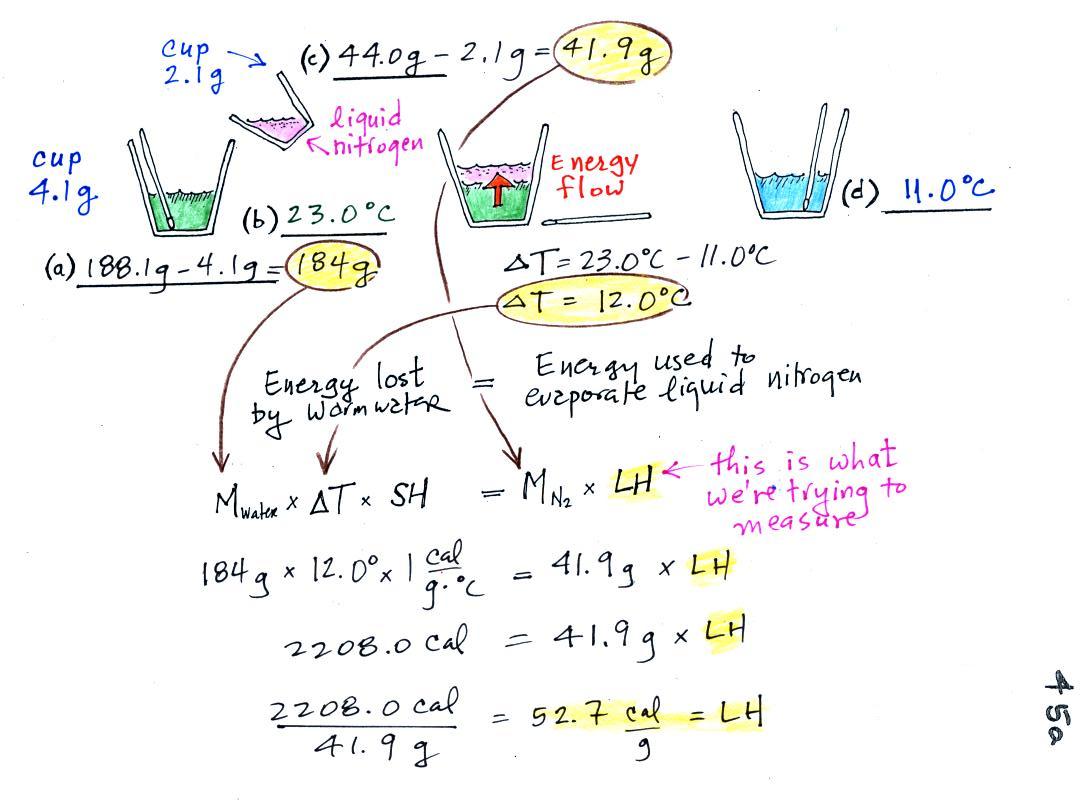 cup
2.1g
(c) 44.0g - 2.1g = 41.9g
liquid
nitrogen
cup
4.1g
Energy
flow
(b) 23.0°C
(d) 11.0°C
(a) 188.1g - 4.1g = 184g
ΔT = 23.0°C - 11.0°C
ΔT = 12.0°C
Energy lost
by warm water
=
Energy used to
evaporate liquid nitrogen
Mwater × ΔT × SH = MN2 × LH
this is what
we're trying to
measure
184g × 12.0° × 1 cal/g·°C = 41.9g × LH
2208.0 cal = 41.9g × LH
2208.0 cal/41.9 g = 52.7 cal/g = LH
45a